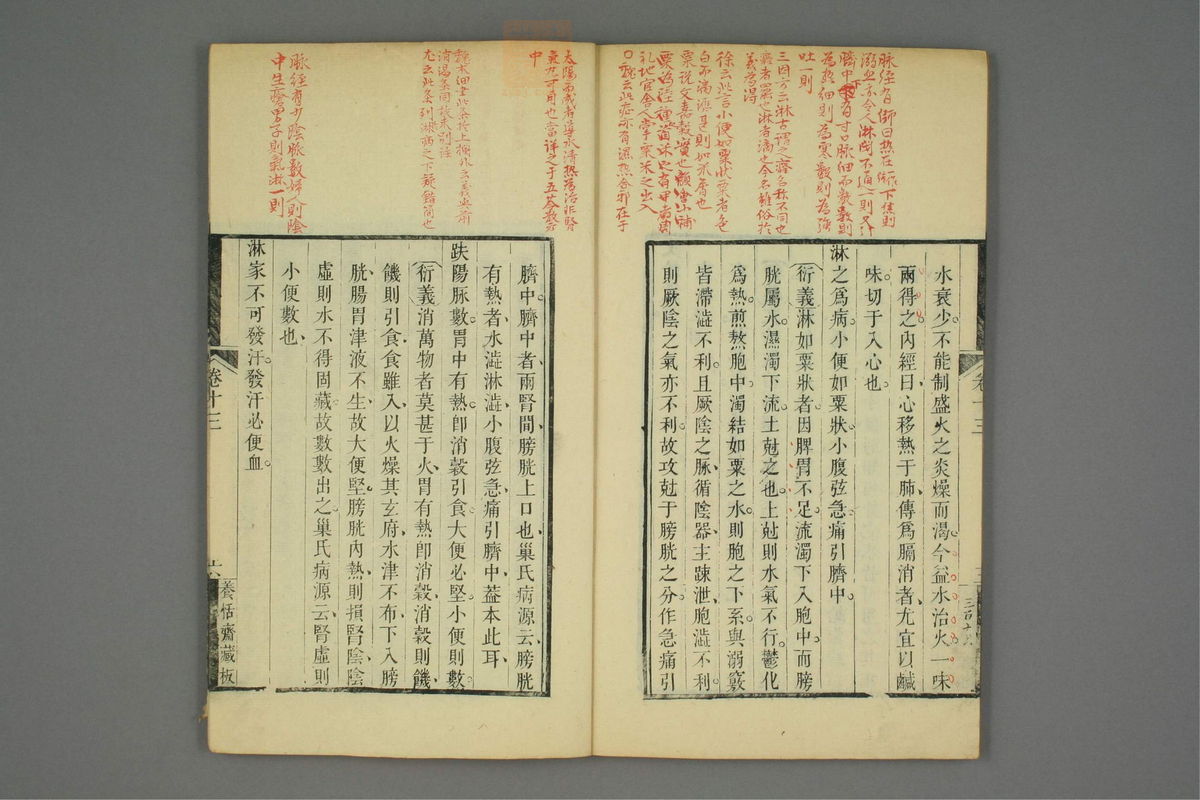 水衰少不能制盛火之炎燥而渴今益水治火一味
兩得之內經曰心移熱于肺傳爲膈消者尤宜以鹹
味切于入心也
淋之爲病小便如粟狀小腹弦急痛引臍中
衍義淋如粟狀者因脾胃不足流濁下入胞中而膀
胱屬水濕濁下流土尅之也上尅則水氣不行鬱化
爲熱煎熬胞中濁結如粟之水則胞之下系與溺竅
皆滯澁不利且厥陰之脉循陰器主踈泄胞澁不利
則厥陰之氣亦不利故攻尅于膀胱之分作急痛引
臍中臍中者兩腎間膀胱上口也巢氏病源云膀胱
有熱者水澁淋澁小腹弦急痛引臍中蓋本此耳
趺陽脉數胃中有熱卽消穀引食大便必堅小便則數
衍義消萬物者莫甚于火胃有熱卽消穀消穀則饑
饑則引食食雖入以火燥其玄府水津不布下入膀
胱腸胃津液不生故大便堅膀胱內熱則損腎陰陰
虛則水不得固藏故數數出之巢氏病源云腎虛則
小便數也
淋家不可發汗發汗必便血
卷十三
養恬齋藏板
脉經有師曰熱在下焦則
溺血亦令人淋閟不通一則又
臍中有寸口脉細而數數則
為熱細則為寒數則為強
吐一則
三因方云淋古謂之癃名称不同也
癃者罷也淋者滴也今名雖俗於
義為得
徐云此言小便如粟狀粟者色
白而滴瀝甚則如米屑也
粟說文嘉穀實也
禮地官舍人掌粟米之出入
脉經有少陰脉數婦人則陰
中生瘡男子則氣淋一則